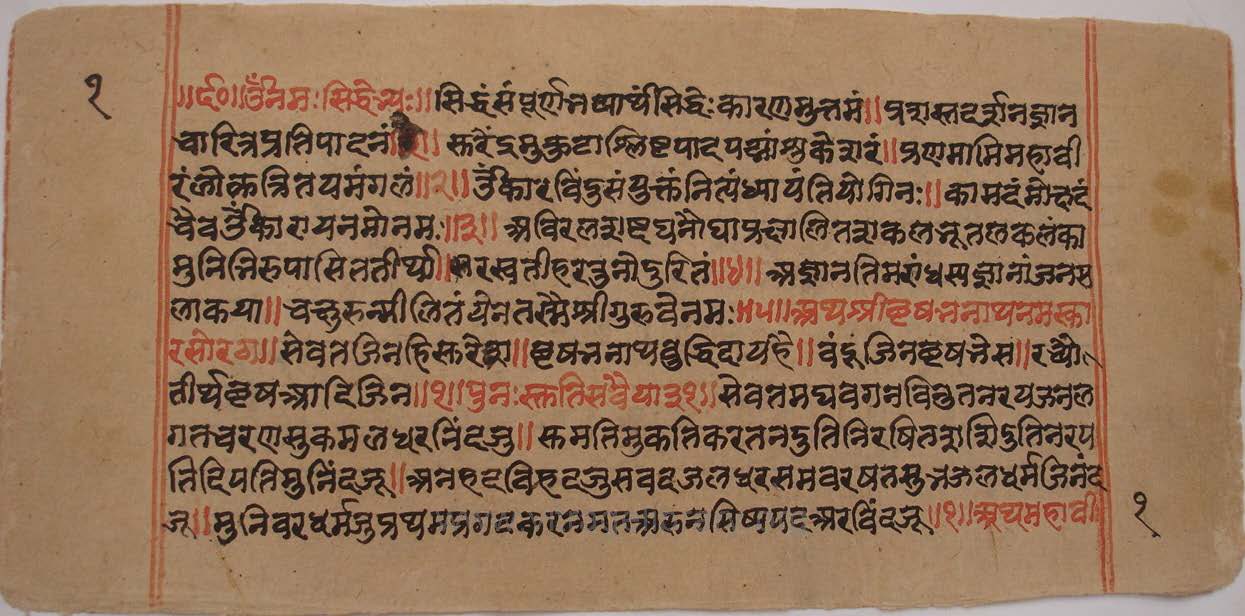 १
॥र्द०॥ उँ नमः सिद्धेभ्यः॥ सिद्धंसंपूर्णभव्यार्थंसिद्धेःकारणमुत्तमं॥ प्रशस्तदर्शनज्ञान
चारित्रप्रतिपादनं॥१॥ सुरेंद्रमुकुटाश्लिष्टपादपद्मांसुकेशरं॥ प्रणमामिमहावी
रंलोकत्रितयमंगलं॥२॥ उँकारविंदुसंयुक्तंनित्यंध्यायंतियोगिनः॥ कामदंमोक्षदं
चैवउँकारायनमोनमः॥३॥ अविरलशष्टघनौघाप्रक्षालितशकलभूतलकलंका
मुनिभिरुपासिततीर्था॥ सरस्वतीहरतुनोदुरितं॥४॥ अज्ञानतिमरांधस्यज्ञानांजनस
लाकया॥ चक्षुरुन्मीलितंयेनतस्मैश्रीगुरुवैनमः॥५॥ अथश्रीवृषभनाथनमस्का
रसोरठा॥ सेवतजिनहिसुरेश॥ वृषभनाथबुद्धिदायहै॥ वंदूजिनवृषभेस॥
तीर्थवृषआदिजिन॥१॥ पुनःस्तुतिसवैया३१॥ सेवतमघवगनविबुतनरयजनुल
गतचरणसुकमलधरनिंदजु॥ सुमतिमुकतिकरतनदुतिनिरषितशशिदुतिनरप
तिदिपतिमुनिंदजू॥ अनहदविहदजुसवदजलधरसमवरषतसुभजलधर्मजिनंद
जू॥ मुनिवरधर्मजुप्रथमप्रगट अरविंदजू॥१॥ अथमहावी
१